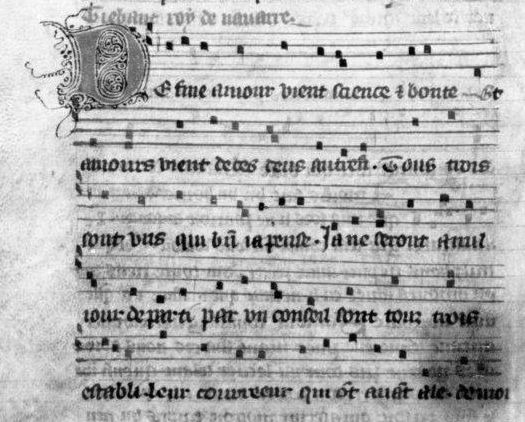 Tiebaut roy de nauarre.
De fine amour vient science ⁊ bonte Et
amours vient de ces deus autresi. Tous trois
sont vns qui bn̄ ia pense. Ja ne seront a nul
iour departi par vn conseil sont touz trois
establi. leur coureeur qui ōt auāt ale. de moi